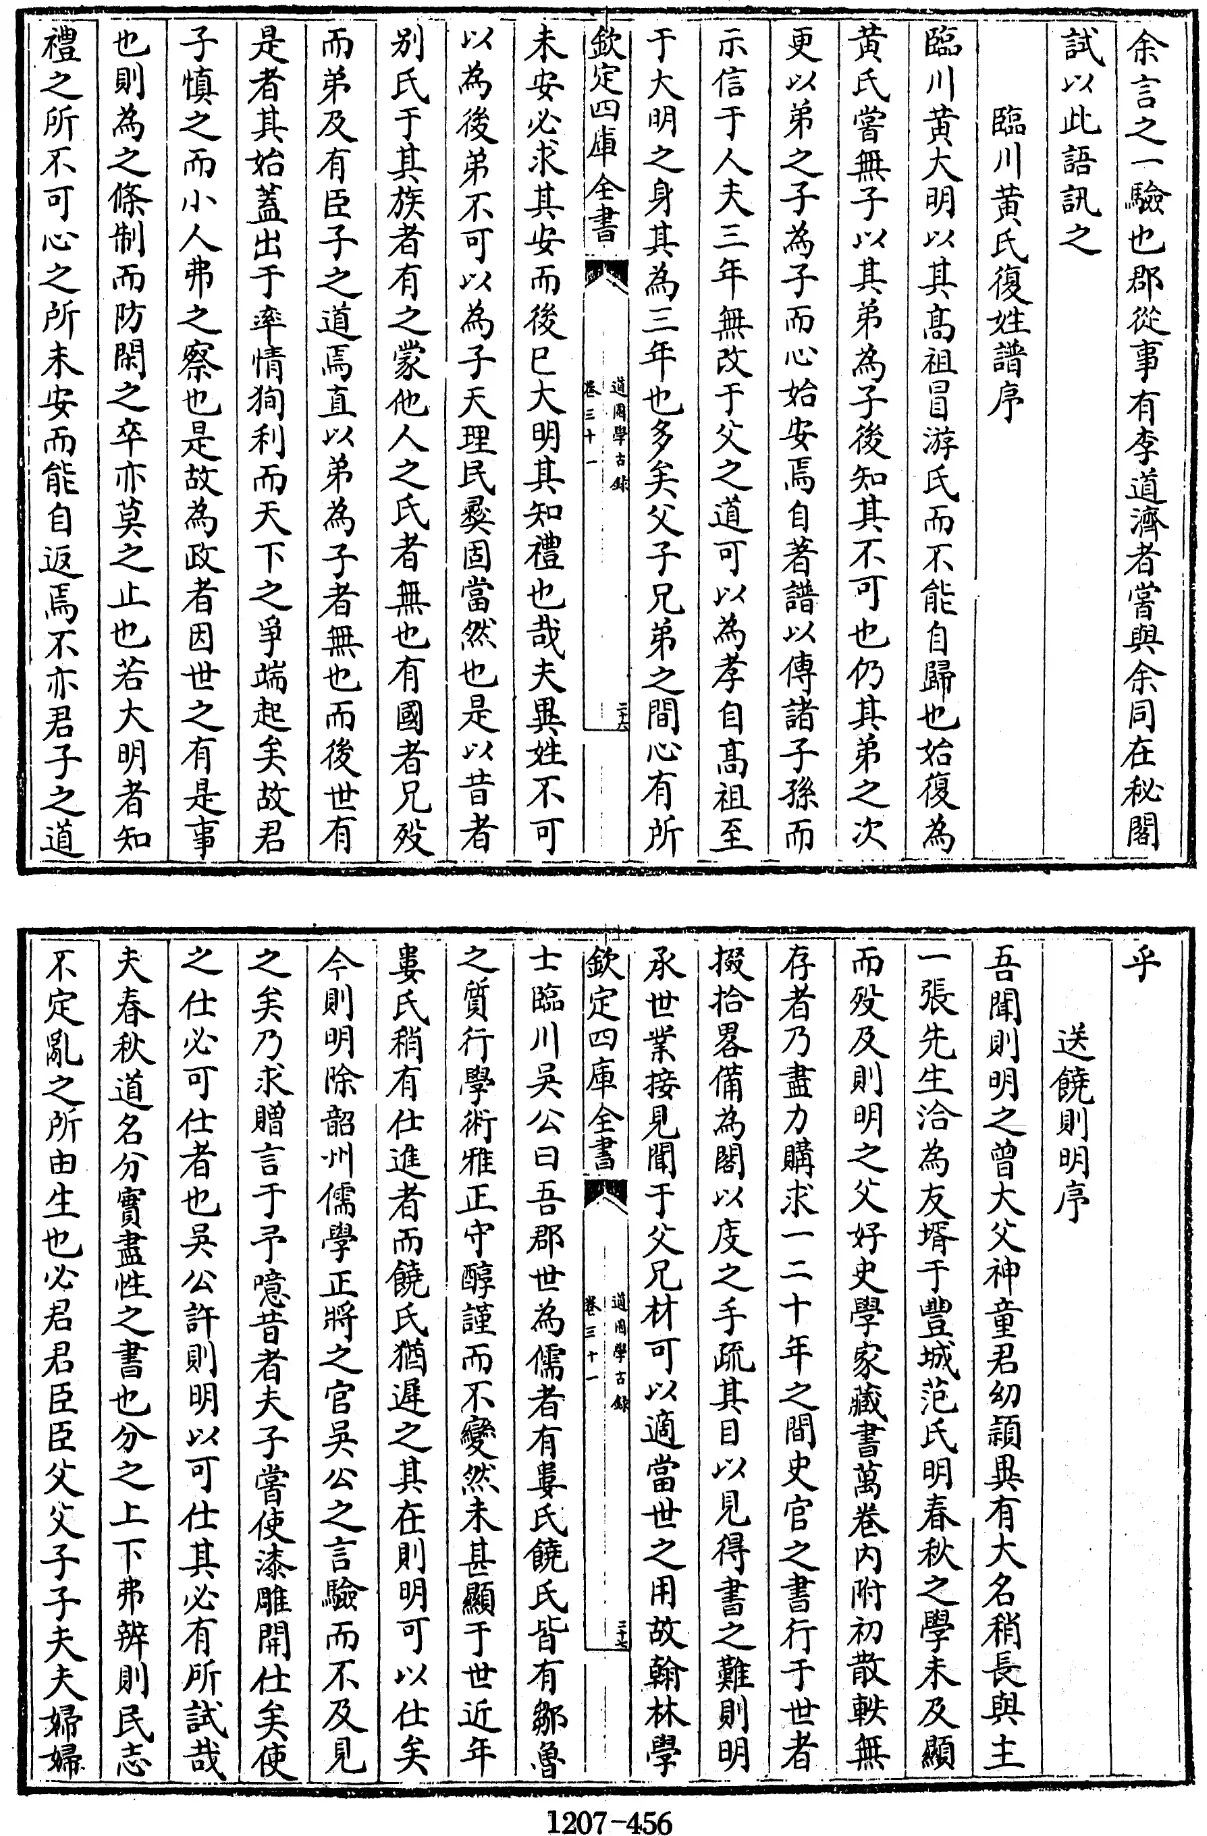 余言之一驗也郡從事有李道濟者嘗與余同在秘閣
試以此語訊之
臨川黄氏復姓譜序
臨川黄大明以其髙祖冒游氏而不能自歸也始復為
黄氏嘗無子以其弟為子後知其不可也仍其弟之次
更以弟之子為子而心始安焉自著譜以傳諸子孫而
示信于人夫三年無改于父之道可以為孝自髙祖至
于大明之身其為三年也多矣父子兄弟之間心有所
欽定四庫全書
道園學古録
卷三十一
三十六
未安必求其安而後已大明其知禮也哉夫異姓不可
以為後弟不可以為子天理民彛固當然也是以昔者
别氏于其族者有之蒙他人之氏者無也有國者兄殁
而弟及有臣子之道焉直以弟為子者無也而後世有
是者其始蓋出于率情狥利而天下之爭端起矣故君
子慎之而小人弗之察也是故為政者因世之有是事
也則為之條制而防閑之卒亦莫之止也若大明者知
禮之所不可心之所未安而能自返焉不亦君子之道
乎
送饒則明序
吾聞則明之曽大父神童君幼頴異有大名稍長與主
一張先生洽為友壻于豐城范氏明春秋之學未及顯
而殁及則明之父好史學家藏書萬卷内附初散軼無
存者乃盡力購求一二十年之間史官之書行于世者
掇拾畧備為閣以庋之手疏其目以見得書之難則明
承世業接見聞于父兄材可以適當世之用故翰林學
欽定四庫全書
道園學古録
卷三十一
三十七
士臨川吳公曰吾郡世為儒者有婁氏饒氏皆有鄒魯
之質行學術雅正守醇謹而不變然未甚顯于世近年
婁氏稍有仕進者而饒氏猶遲之其在則明可以仕矣
今則明除韶州儒學正將之官吳公之言驗而不及見
之矣乃求贈言于予噫昔者夫子嘗使漆雕開仕矣使
之仕必可仕者也吳公許則明以可仕其必有所試哉
夫春秋道名分實盡性之書也分之上下弗辨則民志
不定亂之所由生也必君君臣臣父父子子夫夫婦婦
1207-456